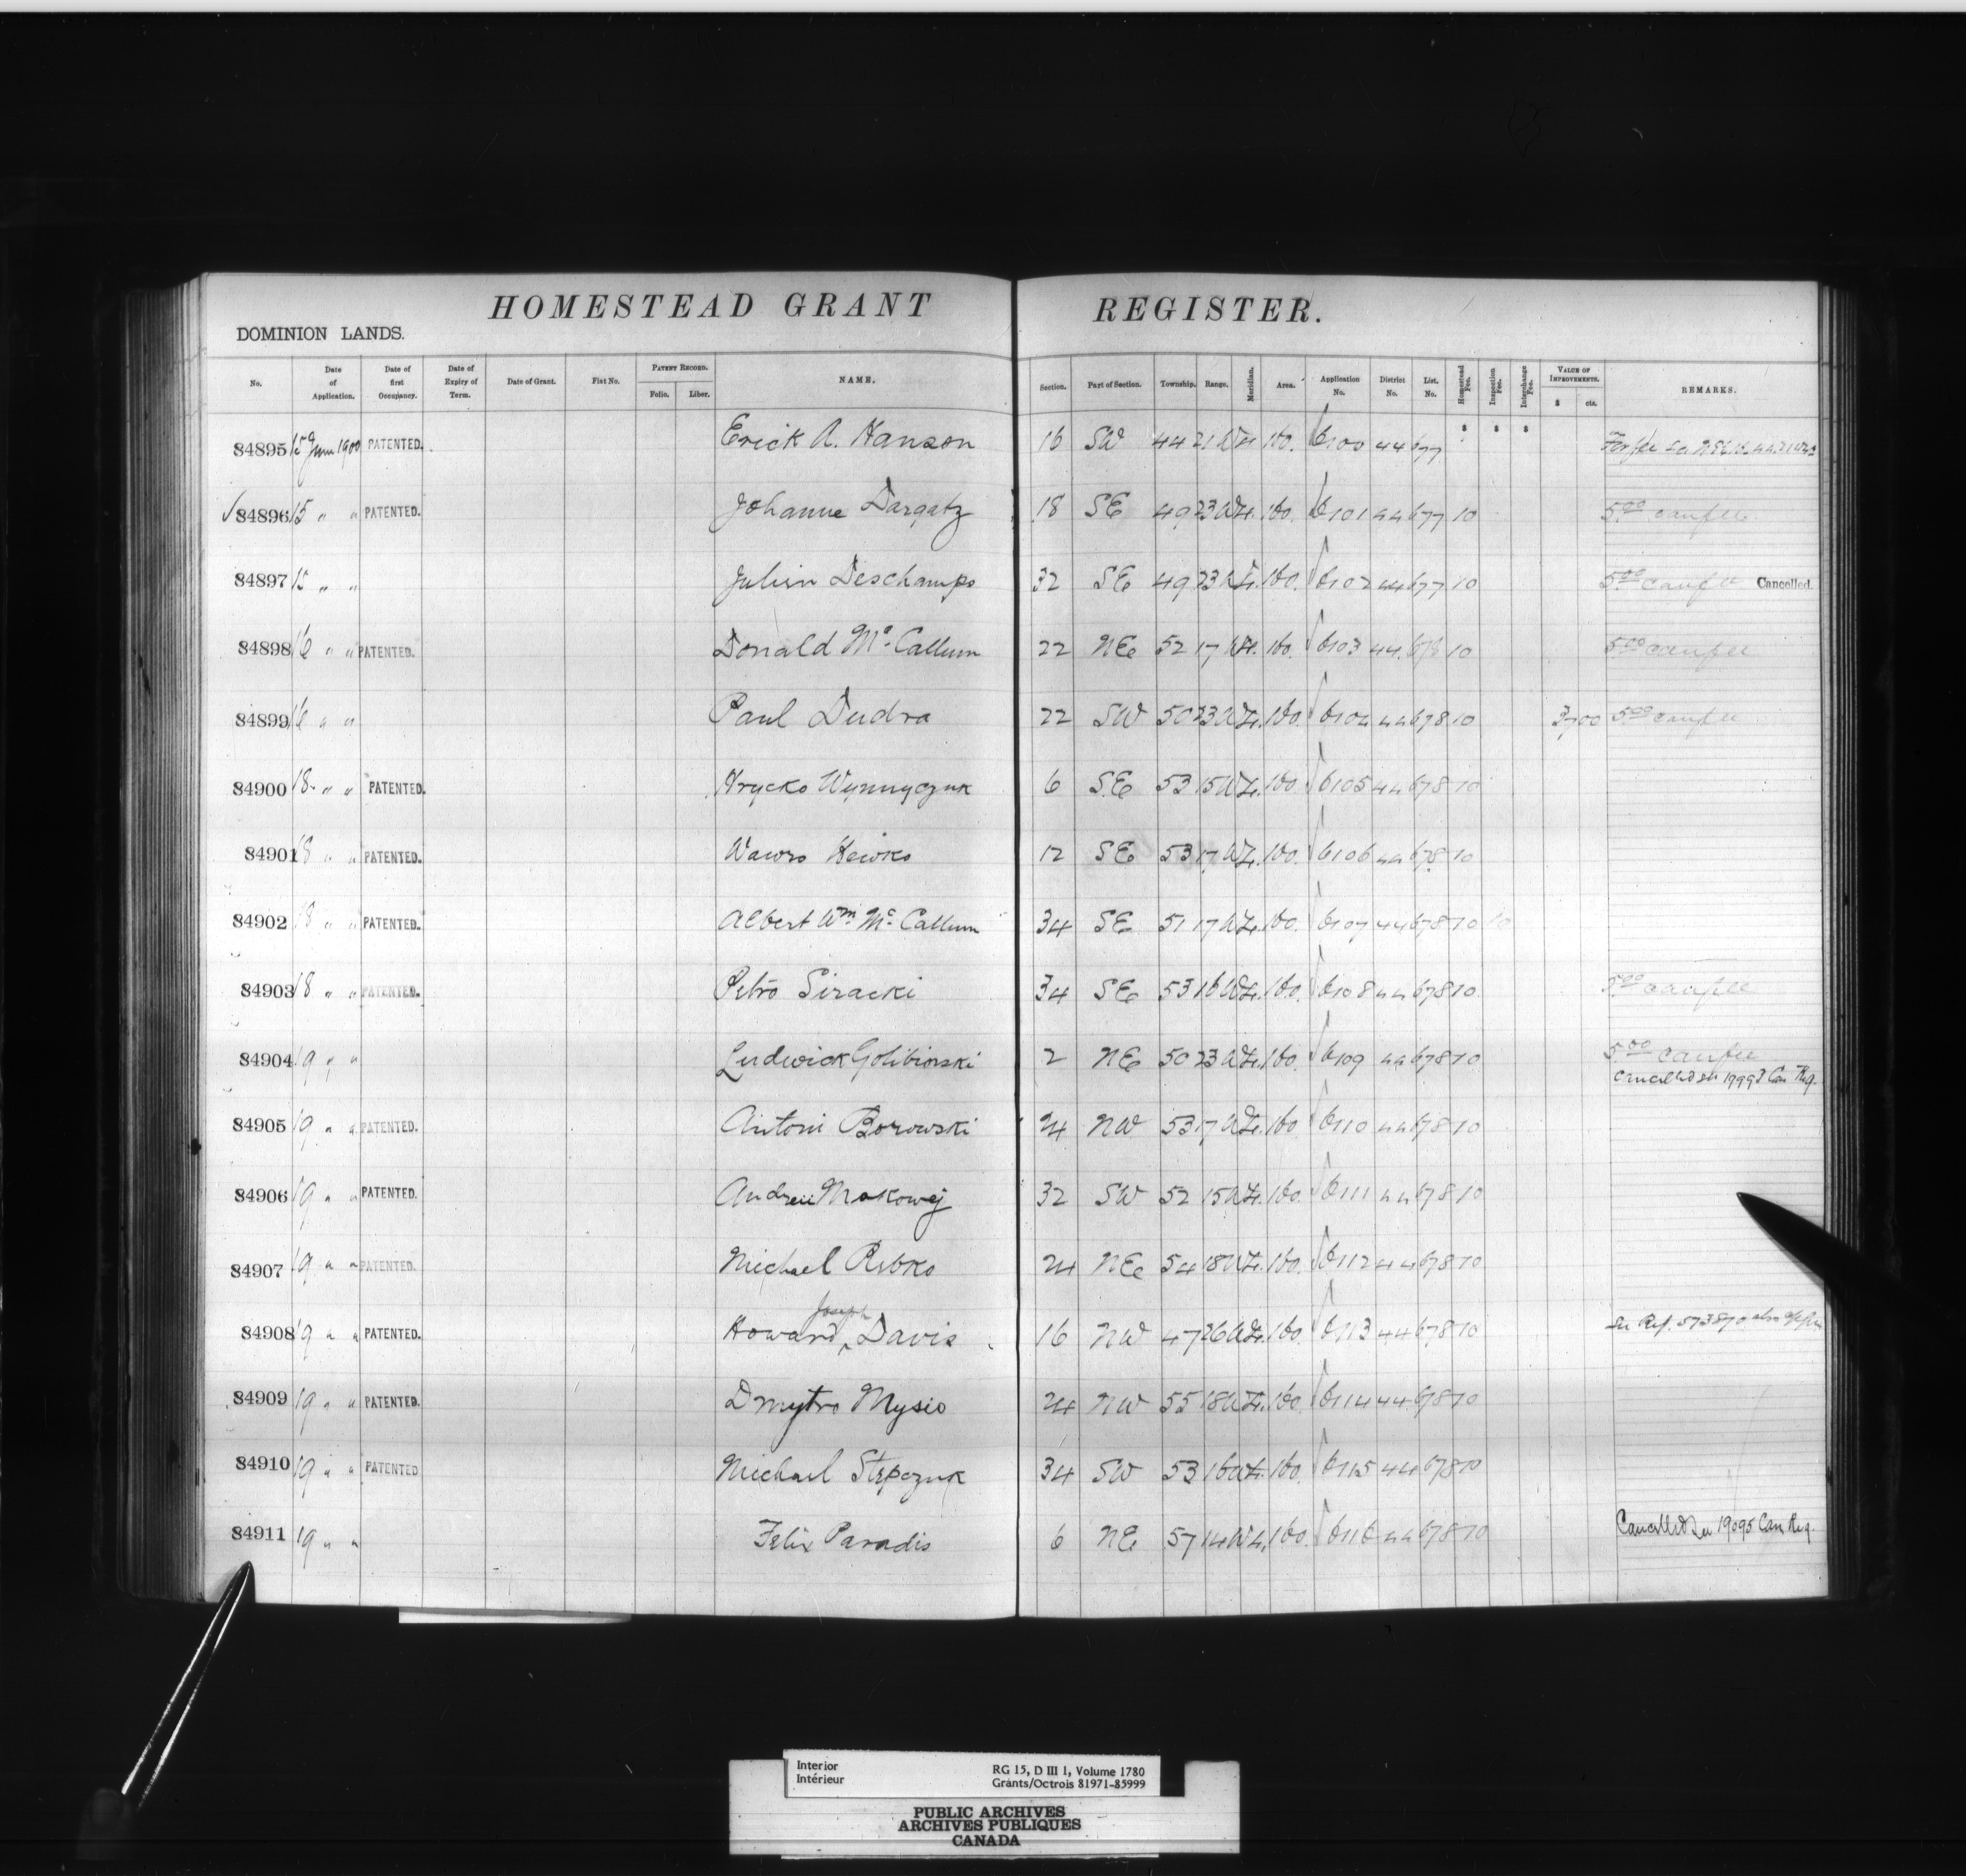 HOMESTEAD GRANT REGISTER.
DOMINION LANDS.
No. Date of Application. Date of first Occupancy. Date of Expiry of Term. Date of Grant. Fiat No. PATENT RECORD. Folio. Liber. NAME. Section. Part of Section. Township. Range. Meridian. Area. Application No. District No. List. No. Homestead Fee. Inspection Fee. Interchange Fee. VALUE OF IMPROVEMENTS. $ cts. REMARKS.
84895 15 June 1900 PATENTED. Erick A. Hanson 16 SW 44 21 W4 160. 6100 44 677
84896 15 " " PATENTED. Johanne Dargatz 18 SE 49 23 W4. 160. 6101 44 677 10 5.00 canfee
84897 15 " " Julien Deschamps 32 SE 49 23 W4. 160. 6102 44 677 10 5.00 canfee Cancelled.
84898 16 " " PATENTED. Donald Mc Callum 22 NE 52 17 W4. 160. 6103 44. 678 10 5.00 canfee
84899 16 " " Paul Dudra 22 SW 50 23 W4. 160. 6104 44 678 10 37 00 5.00 canfee
84900 18 " " PATENTED. Hrycko Wynnyczuk 6 SE 53 15 W4. 160. 6105 44 678 10
84901 18 " " PATENTED. Wawro 12 SE 53 17 W4. 160. 6106 44 678 10
84902 18 " " PATENTED. Albert Wm Mc Callum 34 SE 51 17 W4. 160. 6107 44 678 10 10
84903 18 " " PATENTED. Petro Siracki 34 SE 53 16 W4. 160. 6108 44 678 10 5.00 canfee
84904 19 " " Ludwick Golibiorski 2 NE 50 23 W4. 160. 6109 44 678 10 5.00 canfee
Cancelled see 19993 Can Reg.
84905 19 " " PATENTED. Antoni Borowski 24 NW 53 17 W4. 160 6110 44 678 10
84906 19 " " PATENTED. Andreii Mokowej 32 SW 52 15 W4. 160. 6111 44 678 10
84907 19 " " PATENTED. Michael Rebko 24 NE 54 18 W4. 160. 6112 44 678 10
84908 19 " " PATENTED. Howard Joseph Davis 16 NW 47 26 W4. 160. 6113 44 678 10 See Ref. 573870
84909 19 " " PATENTED. Dmytro Mysio 24 NW 55 18 W4. 160. 6114 44 678 10
84910 19 " " PATENTED Michael Stepczuk 34 SW 53 16 W4. 160. 6115 44 678 10
84911 19 " " Felix Paradis 6 NE 57 14 W4. 160. 6116 44 678 10 Cancelled See 19095 Can Reg.
Interior
Intérieur
RG 15, D III 1, Volume 1780
Grants/Octrois 81971-85999
PUBLIC ARCHIVES
ARCHIVES PUBLIQUES
CANADA